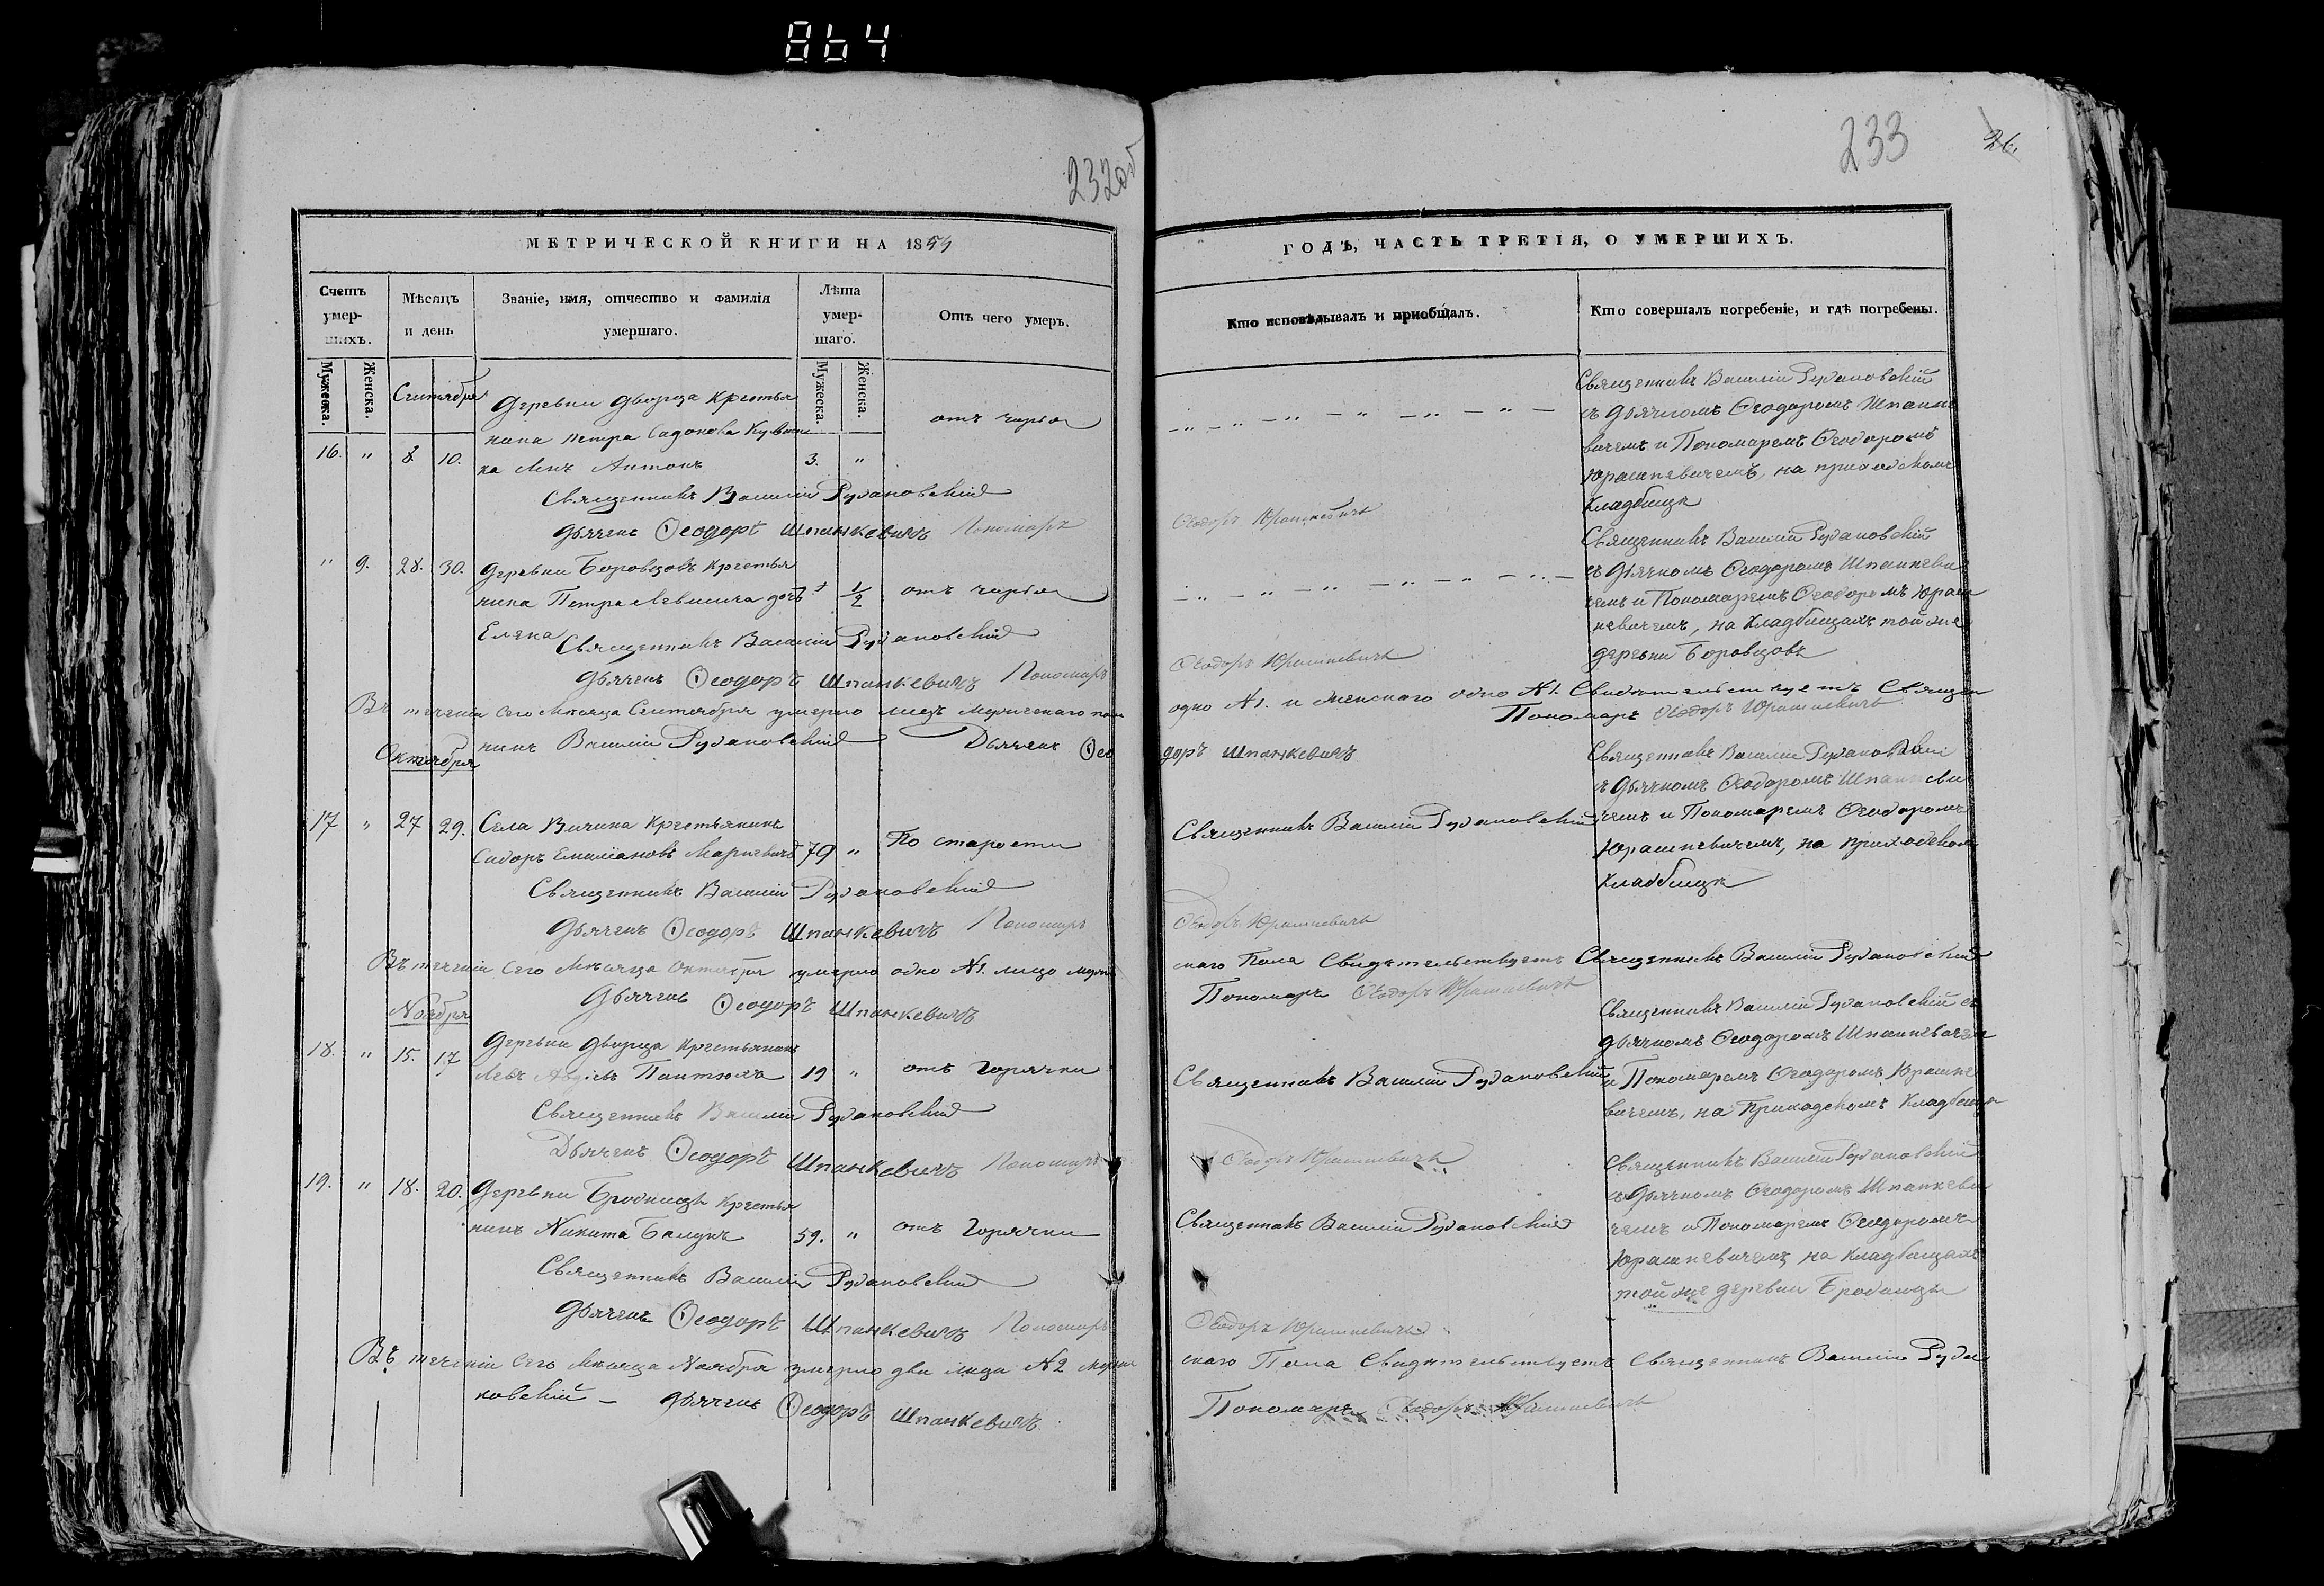 864
232об
233
26.
МЕТРИЧЕСКОЙ КНИГИ НА 18
ГОДЪ, ЧАСТЬ ТРЕТІЯ, О УМЕРШИХЪ.
Счетъ умер-шихъ.
Мѣсяцъ и день
Званіе, имя, отчество и фамилія умершаго.
Лѣта умер-шаго.
Отъ чего умеръ.
Кто исповѣдывалъ и пріобщалъ.
Кто совершалъ погребеніе, и гдѣ погребены.
Мужеска.
Женска.
Мужеска.
Женска.
Сентября
Деревни Дворца крестья
нина Петра
16. " 8. 10. Антонъ 3. "
отъ
Священникъ Василій Рудаковскій
Дьячекъ Ѳеодоръ Шпанкевичъ Пономарь
Ѳеодоръ Юрашкевичъ
Священникъ Василій Рудаковскій
съ Дьячкомъ Ѳеодоромъ Шпанке
вичемъ и Пономаремъ Ѳеодоромъ
Юрашкевичемъ, на приходскомъ
кладбищѣ
" 9. 28. 30. Деревни Боровцовъ крестья
нина Петра дочь " 1/2 отъ
Елена
Священникъ Василій Рудаковскій
Дьячекъ Ѳеодоръ Шпанкевичъ Пономарь
Ѳеодоръ Юрашкевичъ
Священникъ Василій Рудаковскій
съ Дьячкомъ Ѳеодоромъ Шпанкеви
чемъ и Пономаремъ Ѳеодоромъ Юраш
кевичемъ, на кладбищахъ той же
деревни Боровцовъ
Въ теченіи сего Мѣсяца Сентября умерло лицъ мужескаго пола
одно №1. и женскаго одно №1. Свидѣтельствуетъ Священ
никъ Василій Рудаковскій Дьячекъ Ѳео
доръ Шпанкевичъ
Пономарь Ѳеодоръ Юрашкевичъ
Октября
17 " 27 29. Села Вичина крестьянинъ
Сидоръ 79 " По старости
Священникъ Василій Рудаковскій
Дьячекъ Ѳеодоръ Шпанкевичъ Пономарь
Священникъ Василій Рудаковскій
Ѳеодоръ Юрашкевичъ
Священникъ Василій Рудаковскій
съ Дьячкомъ Ѳеодоромъ Шпанкеви
чемъ и Пономаремъ Ѳеодоромъ
Юрашкевичемъ, на приходскомъ
кладбищѣ
Въ теченіи сего Мѣсяца Октября умерло одно №1. лицо муже
скаго Пола Свидѣтельствуетъ Священникъ Василій Рудаковскій
Дьячекъ Ѳеодоръ Шпанкевичъ
Пономарь Ѳеодоръ Юрашкевичъ
Ноября
18. " 15. 17 Деревни Дворца крестьянинъ
19 " отъ горячки
Священникъ Василій Рудаковскій
Дьячекъ Ѳеодоръ Шпанкевичъ Пономарь
Священникъ Василій Рудаковскій
Ѳеодоръ Юрашкевичъ
Священникъ Василій Рудаковскій съ
Дьячкомъ Ѳеодоромъ Шпанкевичемъ
и Пономаремъ Ѳеодоромъ Юрашке
вичемъ, на Приходскомъ кладбищѣ
19. " 18. 20. Деревни Бродницы крестья
нинъ Никита 59. " отъ горячки
Священникъ Василій Рудаковскій
Дьячекъ Ѳеодоръ Шпанкевичъ Пономарь
Священникъ Василій Рудаковскій
Ѳеодоръ Юрашкевичъ
Священникъ Василій Рудаковскій
съ Дьячкомъ Ѳеодоромъ Шпанкеви
чемъ и Пономаремъ Ѳеодоромъ
Юрашкевичемъ, на кладбищахъ
той же деревни Бродницы
Въ теченіи сего Мѣсяца Ноября умерло два лица №2 муже
скаго Пола Свидѣтельствуетъ Священникъ Василій Руда
ковскій – Дьячекъ Ѳеодоръ Шпанкевичъ
Пономарь Ѳеодоръ Юрашкевичъ